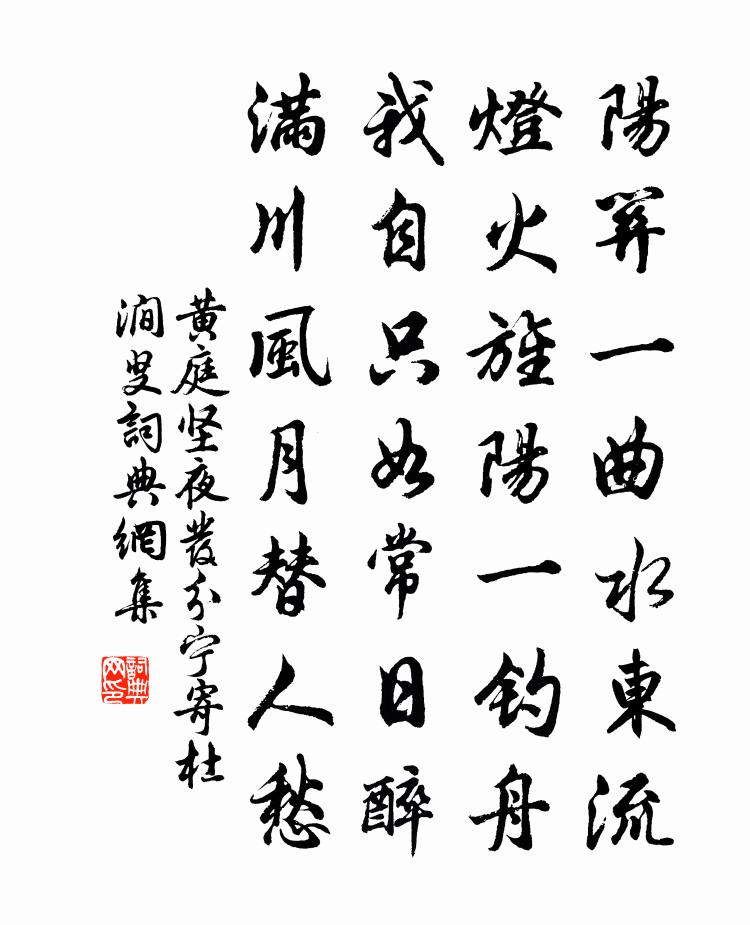 陽關一曲水東流
燈火旌陽一釣舟
我自只如常日醉
滿川風月替人愁
黄庭坚夜發分宁寄杜
澗叟詞典網集
詞典
网印